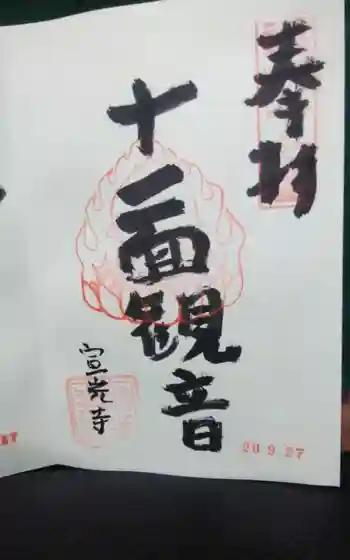 奉拝
十一面観音
宣光寺
20.9.27